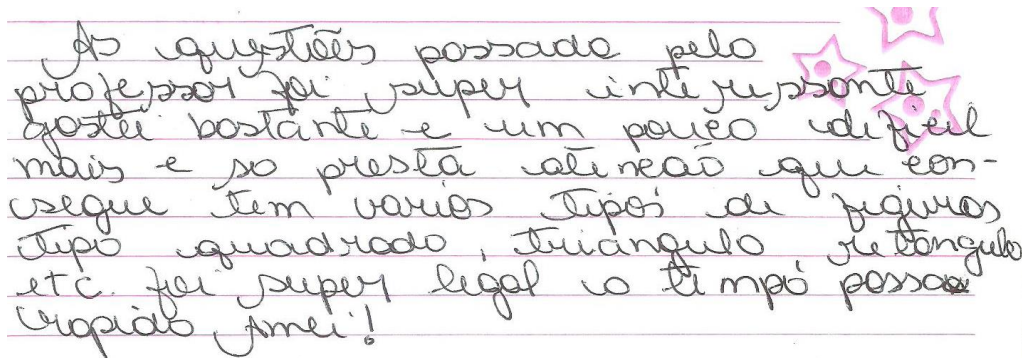 As questões passada pelo
professor foi super interessante
gostei bastante e um pouco dificil
mais e so presta atineção que con-
segue tem varios tipos de figuras
tipo quadrado, triangulo retangulo
etc. foi super legal o tempo passa
rapido Amei!